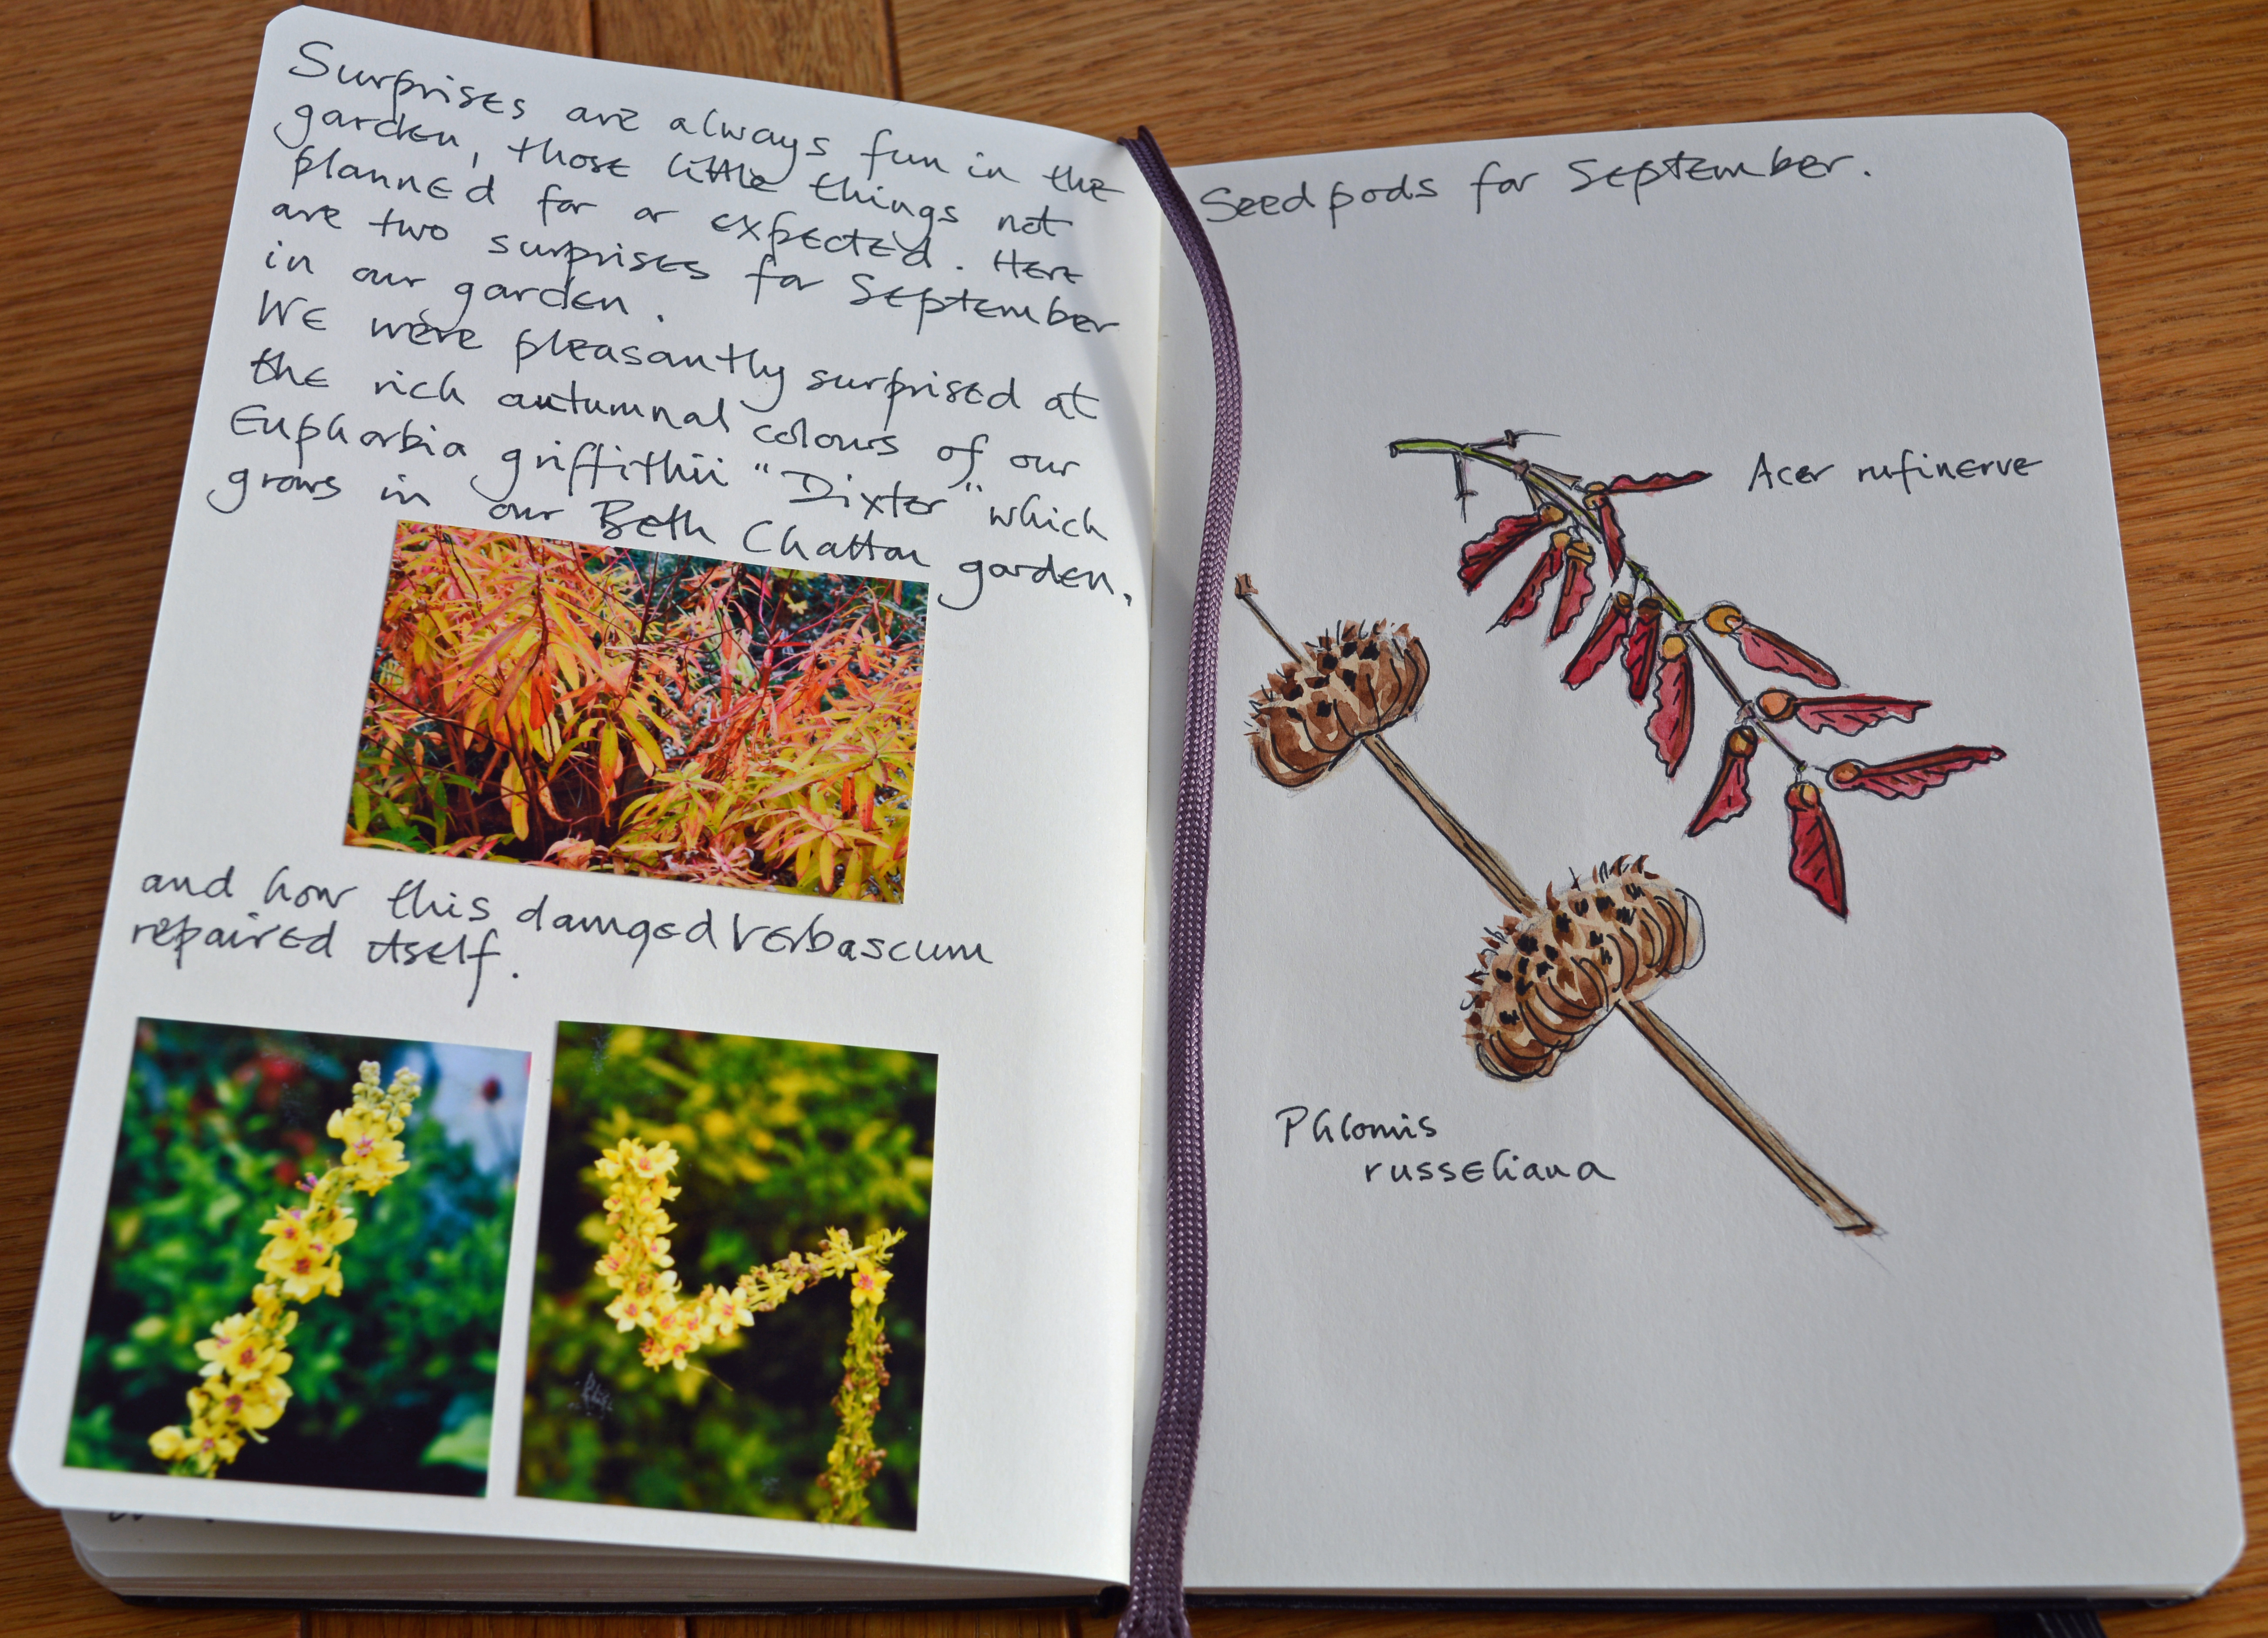 Surprises are always fun in the
garden, those little things not
planned for or expected. Here
are two surprises for September
in our garden.
We were pleasantly surprised at
the rich autumnal colours of our
Euphorbia griffithii "Dixter" which
grows in our Beth Chatton garden.
and how this damged Verbascum
repaired itself.
Seedpods for September.
Acer rufinerve
Phlomis
russeliana